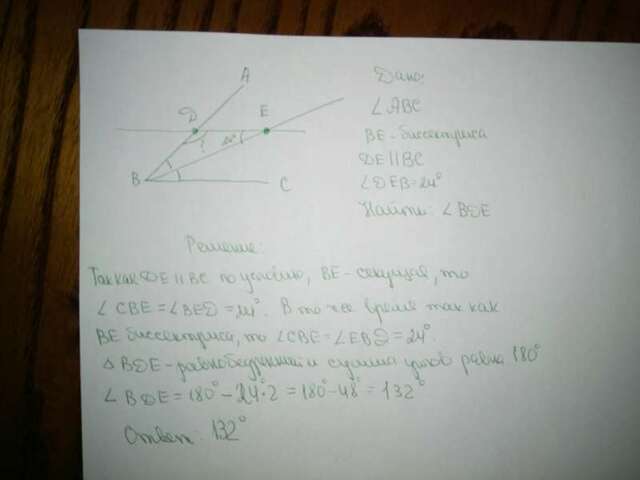 A
D E
? 24°
B C
Дано:
∠ABC
BE - биссектриса
DE || BC
∠DEB = 24°
Найти: ∠BDE
Решение:
Так как DE || BC по условию, BE - секущая, то
∠CBE = ∠BED = 24°. В то же время так как
BE биссектриса, то ∠CBE = ∠EBD = 24°.
△ BDE - равнобедренный и сумма углов равна 180°
∠BDE = 180° - 24°·2 = 180° - 48° = 132°
Ответ: 132°